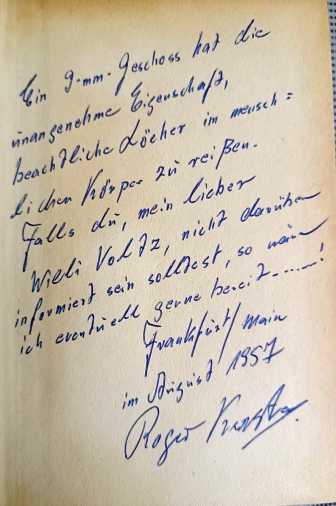 Ein 9-mm-Geschoss hat die
unangenehme Eigenschaft,
beachtliche Löcher im mensch=
lichen Körper zu reißen.
Falls du, mein lieber
Willi Voltz, nicht darüber
informiert sein solltest, so wäre
ich eventuell gerne bereit-.....!
Frankfurt/Main
im August 1957
Roger